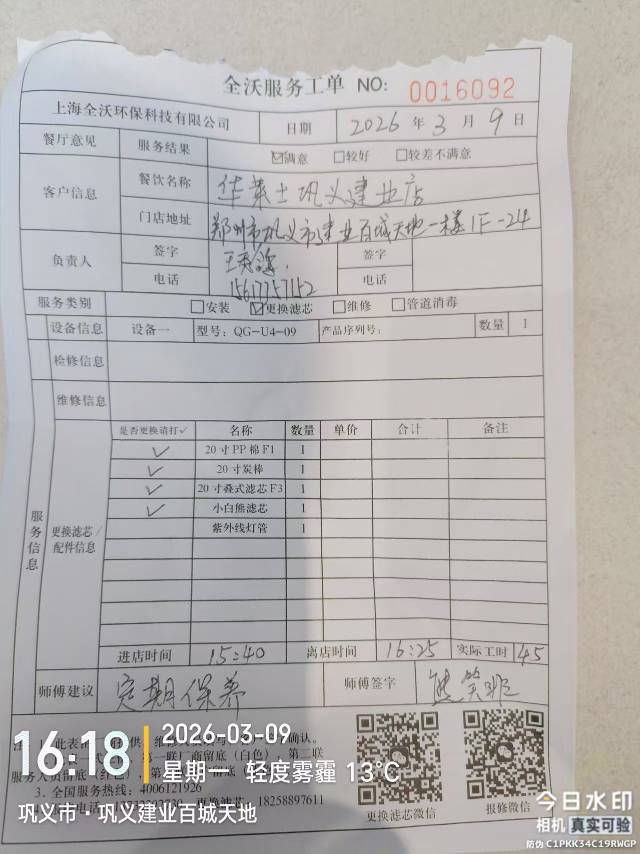 全沃服务工单 NO: 0016092
上海全沃环保科技有限公司 日期 2026 年 3 月 9 日
餐厅意见 服务结果 ☑满意 □较好 □较差不满意
客户信息 餐饮名称 华莱士巩义建业店
门店地址 郑州市巩义市建业百城天地一楼1F-24
负责人 签字 签字
电话 15617757152 电话
服务类别 □安装 ☑更换滤芯 □维修 □管道消毒
设备信息 设备一 型号: QG-U4-09 产品序列号: 数量 1
检修信息
维修信息
服务信息
更换滤芯/配件信息
是否更换请打✓ 名称 数量 单价 合计 备注
✓ 20寸PP棉F1 1
✓ 20寸炭棒 1
✓ 20寸叠式滤芯F3 1
✓ 小白熊滤芯 1
紫外线灯管 1
进店时间 15:40 离店时间 16:25 实际工时 45
师傅建议 定期保养 师傅签字
16:18
2026-03-09
星期一 轻度雾霾 13℃
巩义市·巩义建业百城天地
3. 全国服务热线: 4006121926
更换滤芯: 18258897611
更换滤芯微信
报修微信
今日水印
相机 真实可验
防伪 C1PKK34C19RWGP